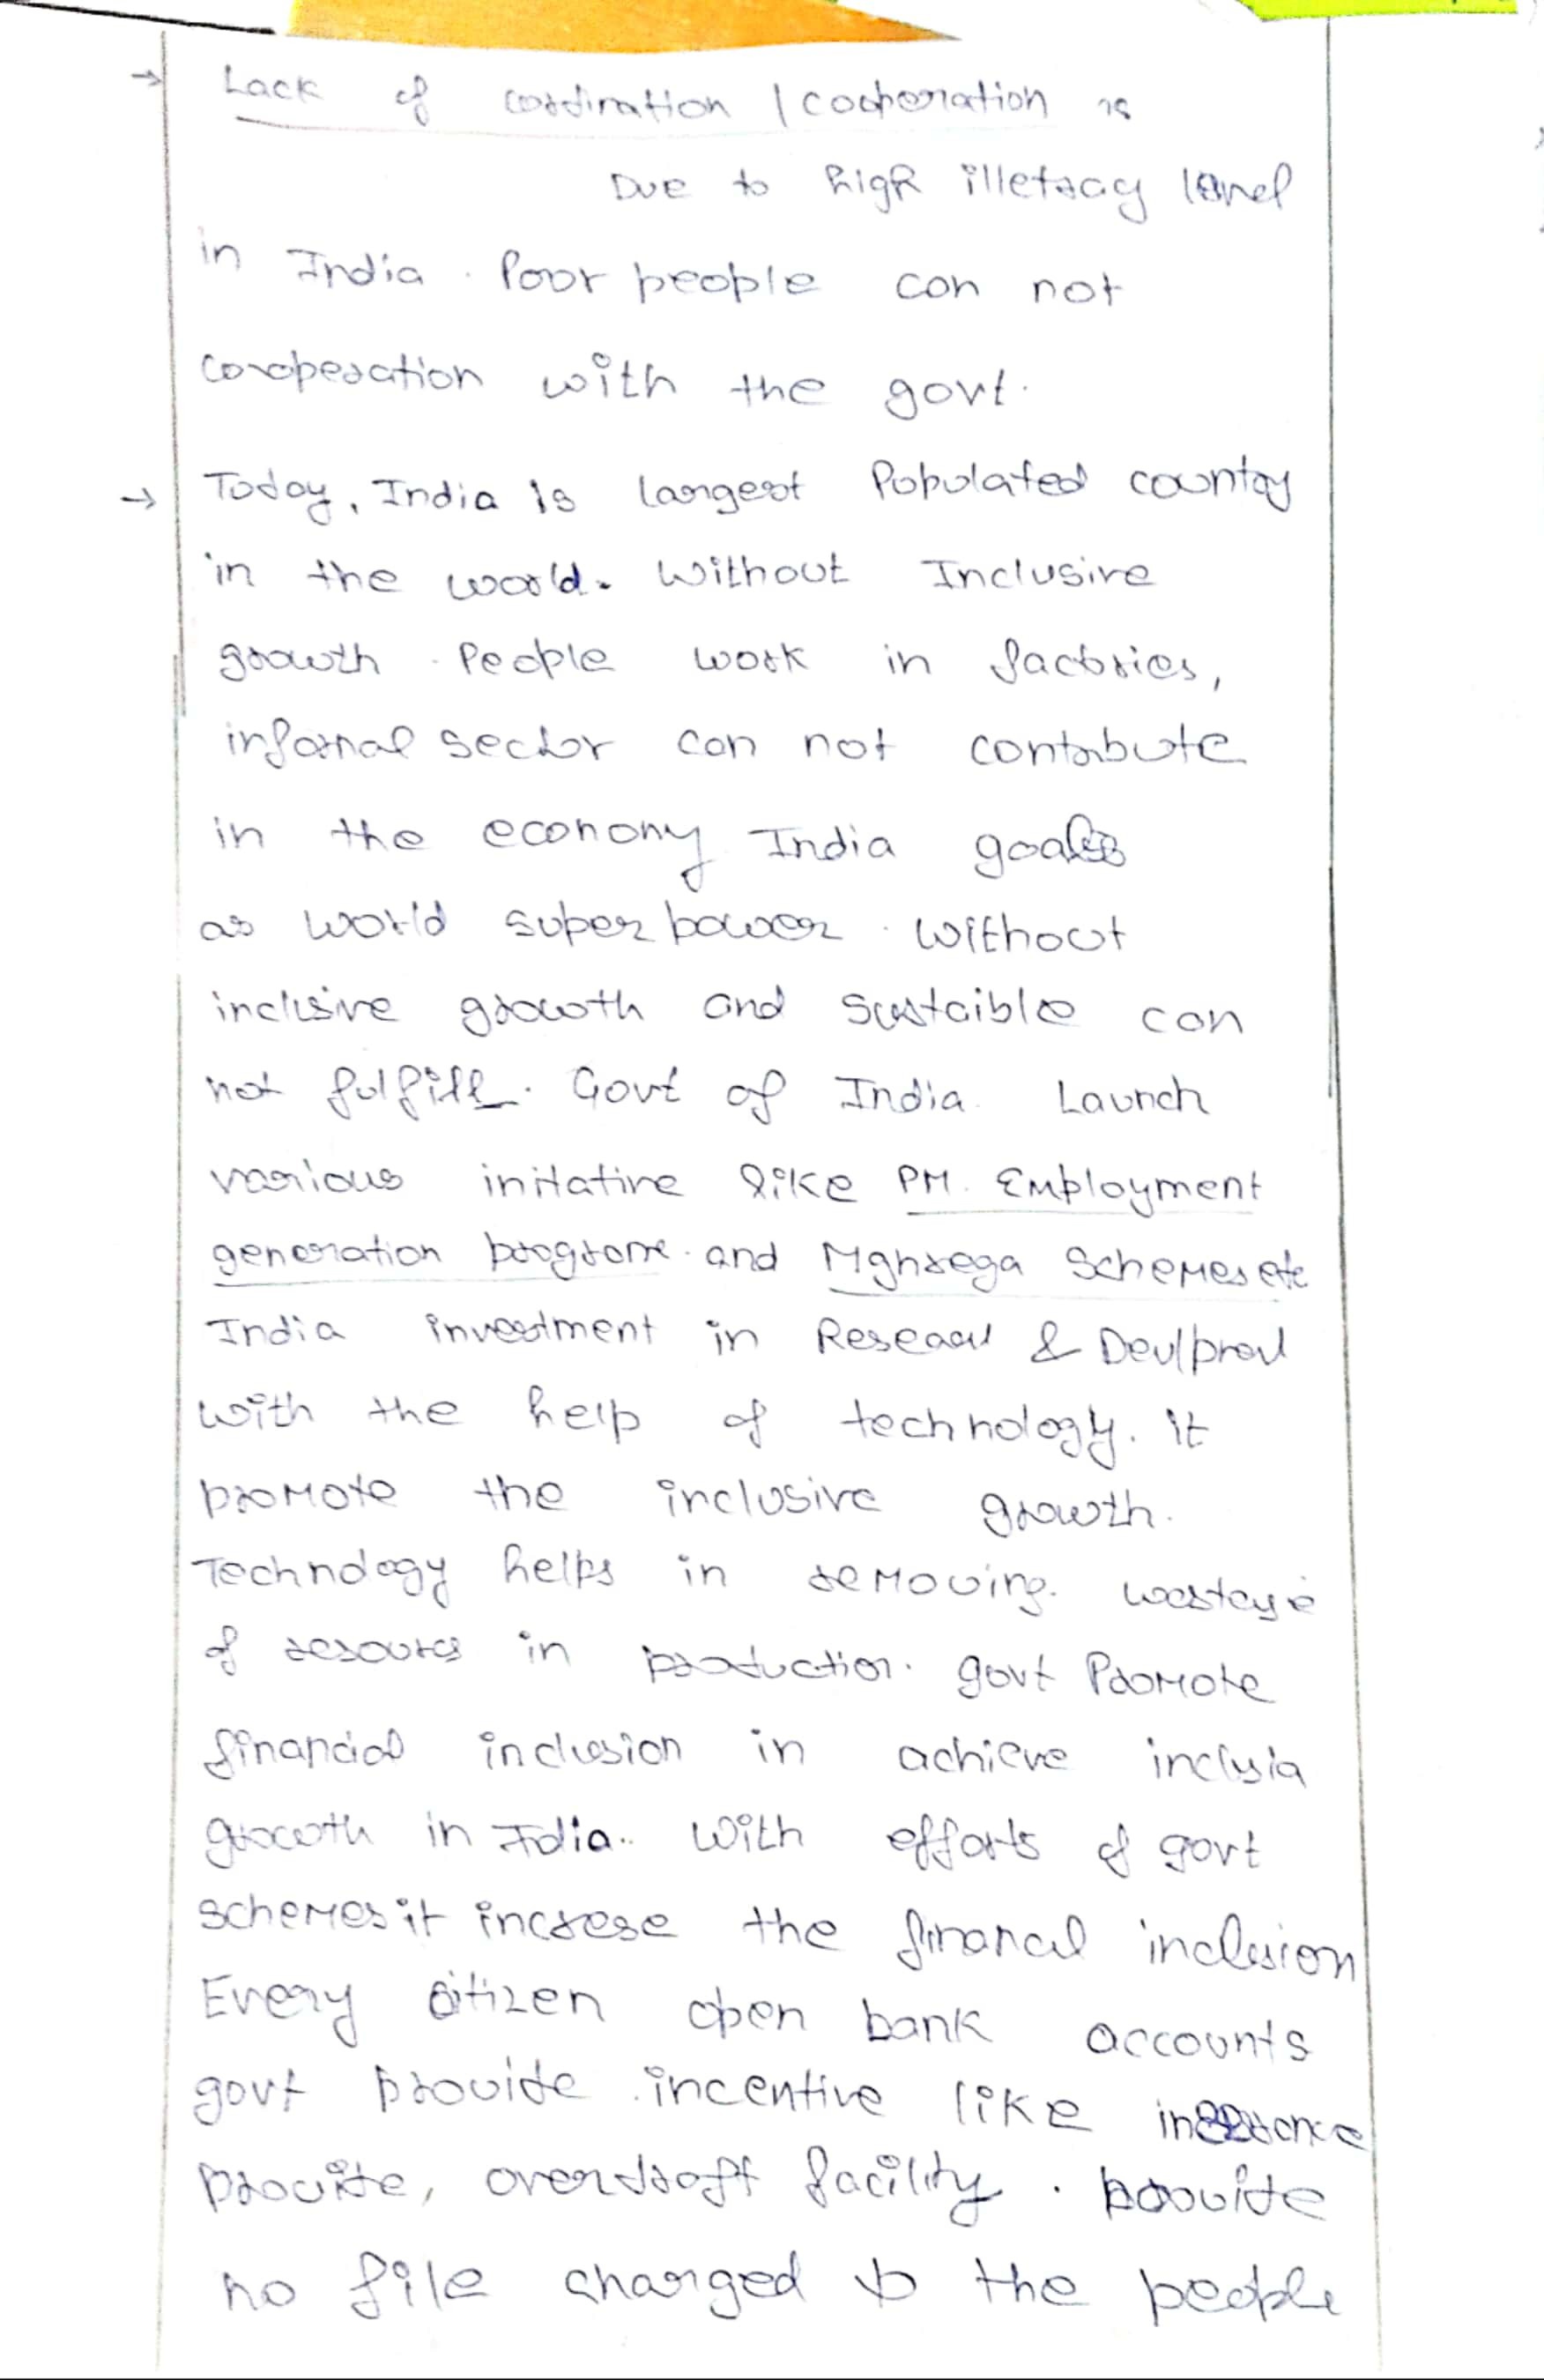 → Lack of cordination | cooperation is
Due to high illetracy level
in India. Poor people can not
cooperation with the govt.
→ Today, India is largest Populated country
in the world. Without Inclusive
growth. People work in factories,
informal sector can not contribute
in the economy India goals
as world super power. Without
inclusive growth and sustaible can
not fulfill. Govt of India. Launch
various initative like PM. Employment
generation programe. and Mgnrega Schemes etc
India investment in & 
with the help of technology. it
promote the inclusive growth.
Technology helps in removing. wastage
of resources in production. govt Promote
financial inclusion in achieve
growth in Idia.. With efforts of govt
schemes it increse the financial inclusion
Every citizen open bank accounts
govt provide incentive like
provite, overdraft facility. provite
no file charged to the people